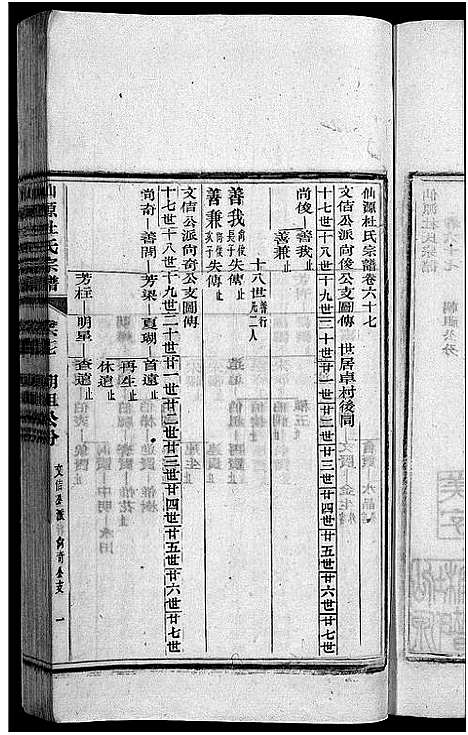 仙源杜氏宗譜卷六十七
文信公派尚俊公支圖傳　世居卓村後岡
十七世十八世十九世二十世廿一世廿二世廿三世廿四世廿五世廿六世廿七世
尚俊—善我止
善兼止
十八世元善行二人
善我尚俊長子失傳止
善兼尚俊次子失傳止
文信公派尚奇公支圖傳
十七世十八世十九世二十世廿一世廿二世廿三世廿四世廿五世廿六世廿七世
尚奇—善問—芳梁—夏瑚—首遠止
再生止
休遠止
芳柱　明杲—查遠止
仙源杜氏宗譜
卷六七　朝祖公分
文信公派尚奇公支　一